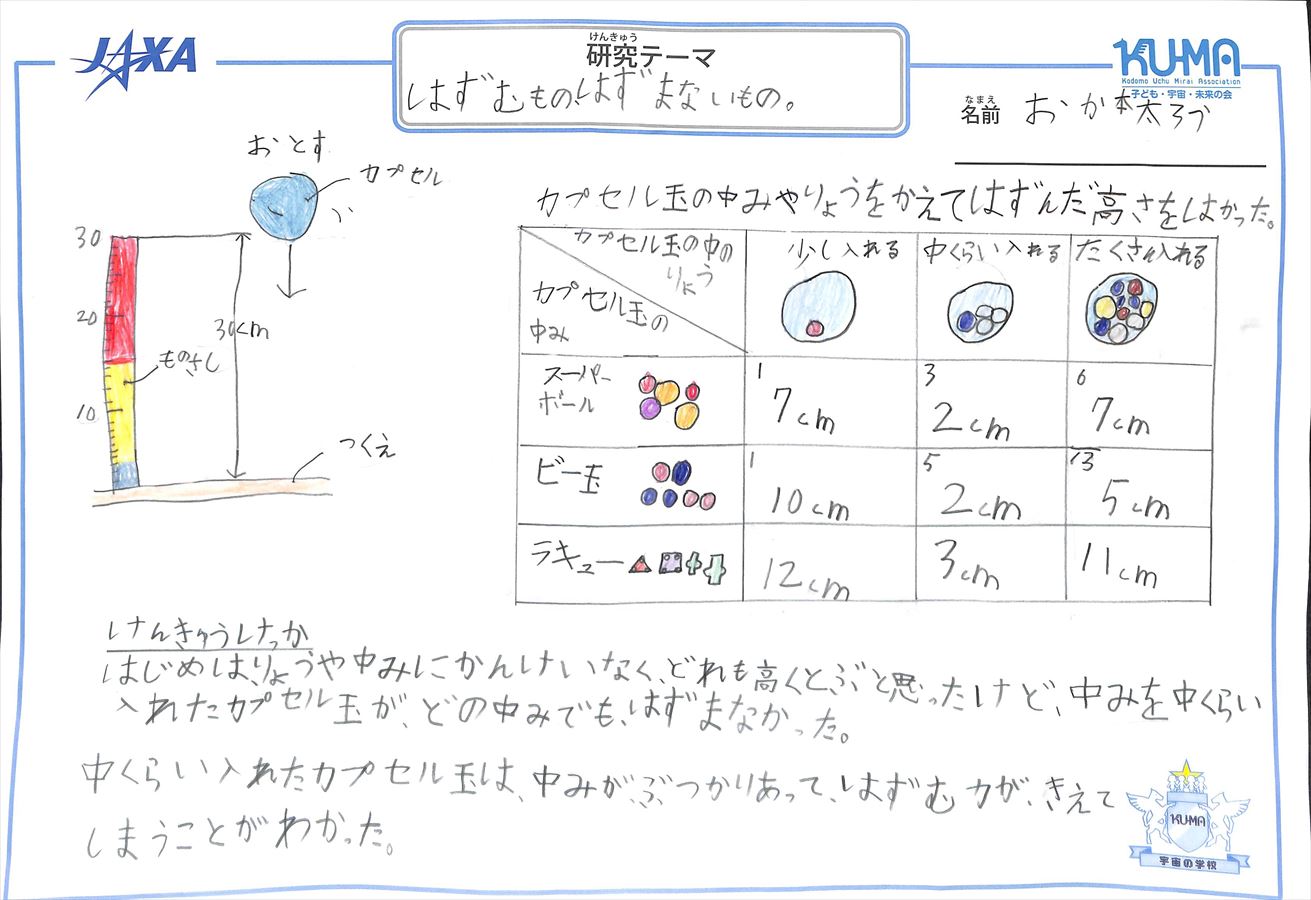 JAXA
けんきゅう
研究テーマ
はずむもの、はずまないもの。
KU-MA
Kodomo Uchu Mirai Association
子ども・宇宙・未来の会
なまえ
名前 おか本太ろう
おとす
カプセル
30
20
10
30cm
ものさし
つくえ
カプセル玉の中みやりょうをかえてはずんだ高さをはかった。
カプセル玉の中の
りょう
カプセル玉の
中み
少し入れる
中くらい入れる
たくさん入れる
スーパー
ボール
1
7cm
3
2cm
6
7cm
ビー玉
1
10cm
5
2cm
13
5cm
ラキュー
12cm
3cm
11cm
けんきゅうけっか
はじめは、りょうや中みにかんけいなく、どれも高くとぶと思ったけど、中みを中くらい
入れたカプセル玉が、どの中みでも、はずまなかった。
中くらい入れたカプセル玉は、中みが、ぶつかりあって、はずむ力が、きえて
しまうことがわかった。
KU-MA
宇宙の学校